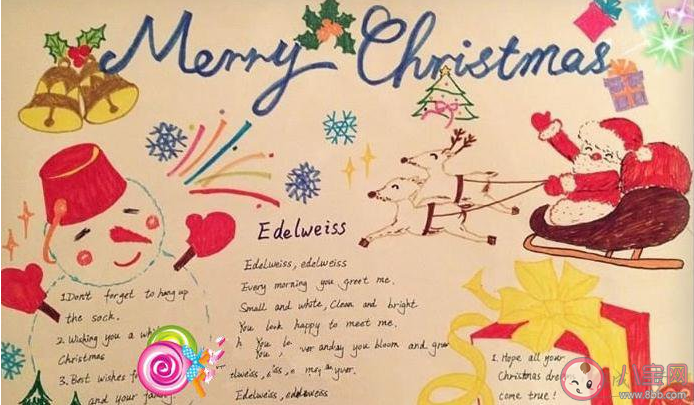 Merry Christmas
Edelweiss
Edelweiss, edelweiss
Every morning you greet me.
Small and white, Clean and bright
You look happy to meet me.
you bloom and
Edelweiss,
1. Don't forget to hang up
the sock.
2. Wishing you a
Christmas
3. Best wishes
and your
1. Hope all your
Christmas
come true!
八宝网
www.8bb.com